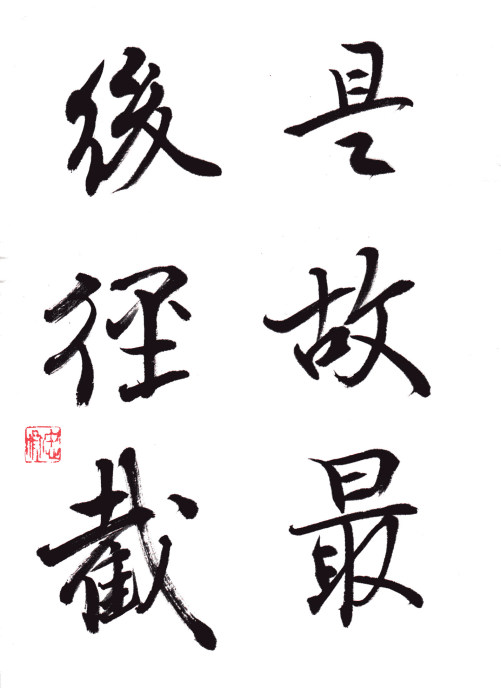 是故最
後径截